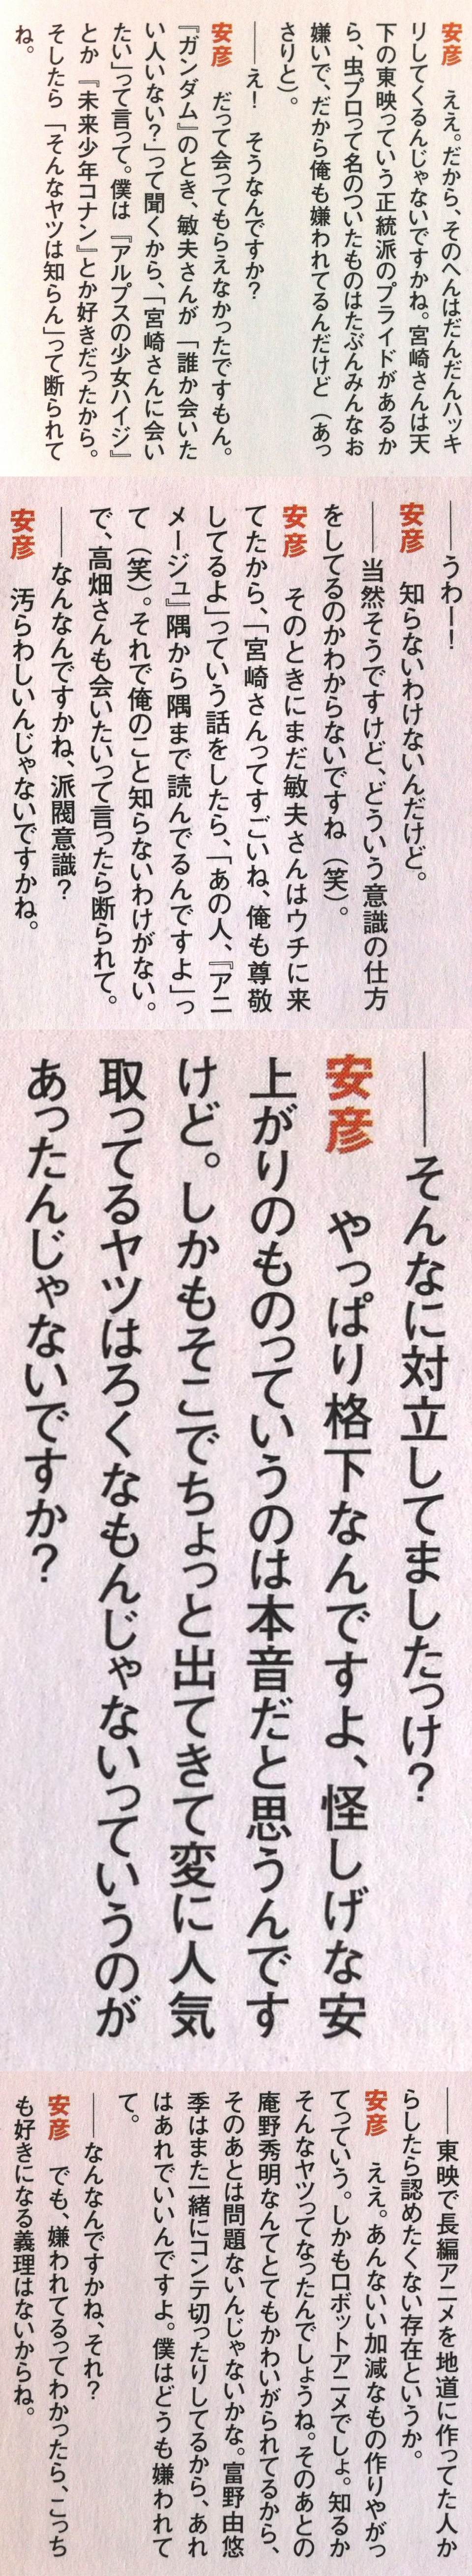 安彦　ええ。だから、そのへんはだんだんハッキ
リしてくるんじゃないですかね。宮崎さんは天
下の東映っていう正統派のプライドがあるか
ら、虫プロって名のついたものはたぶんみんなお
嫌いで、だから俺も嫌われてるんだけど（あっ
さりと）。
――え！　そうなんですか？
安彦　だって会ってもらえなかったですもん。
『ガンダム』のとき、敏夫さんが「誰か会いた
い人いない？」って聞くから、「宮崎さんに会い
たい」って言って。僕は『アルプスの少女ハイジ』
とか『未来少年コナン』とか好きだったから。
そしたら「そんなヤツは知らん」って断られて
ね。
――うわー！
安彦　知らないわけないんだけど。
――当然そうですけど、どういう意識の仕方
をしてるのかわからないですね（笑）。
安彦　そのときにまだ敏夫さんはウチに来
てたから、「宮崎さんってすごいね、俺も尊敬
してるよ」っていう話をしたら、「あの人、『アニ
メージュ』隅から隅まで読んでるんですよ」っ
て（笑）。それで俺のこと知らないわけがない。
で、高畑さんも会いたいって言ったら断られて。
――なんなんですかね、派閥意識？
安彦　汚らわしいんじゃないですかね。
――そんなに対立してましたっけ？
安彦　やっぱり格下なんですよ、怪しげな安
上がりのものっていうのは本音だと思うんです
けど。しかもそこでちょっと出てきて変に人気
取ってるヤツはろくなもんじゃないっていうのが
あったんじゃないですか？
――東映で長編アニメを地道に作ってた人か
らしたら認めたくない存在というか。
安彦　ええ。あんないい加減なもの作りやがっ
てっていう。しかもロボットアニメでしょ。知るか
そんなヤツってなったんでしょうね。そのあとの
庵野秀明なんてとてもかわいがられてるから、
そのあとは問題ないんじゃないかな。富野由悠
季はまた一緒にコンテ切ったりしてるから、あれ
はあれでいいんですよ。僕はどうも嫌われて
て。
――なんなんですかね、それ？
安彦　でも、嫌われてるってわかったら、こっち
も好きになる義理はないからね。